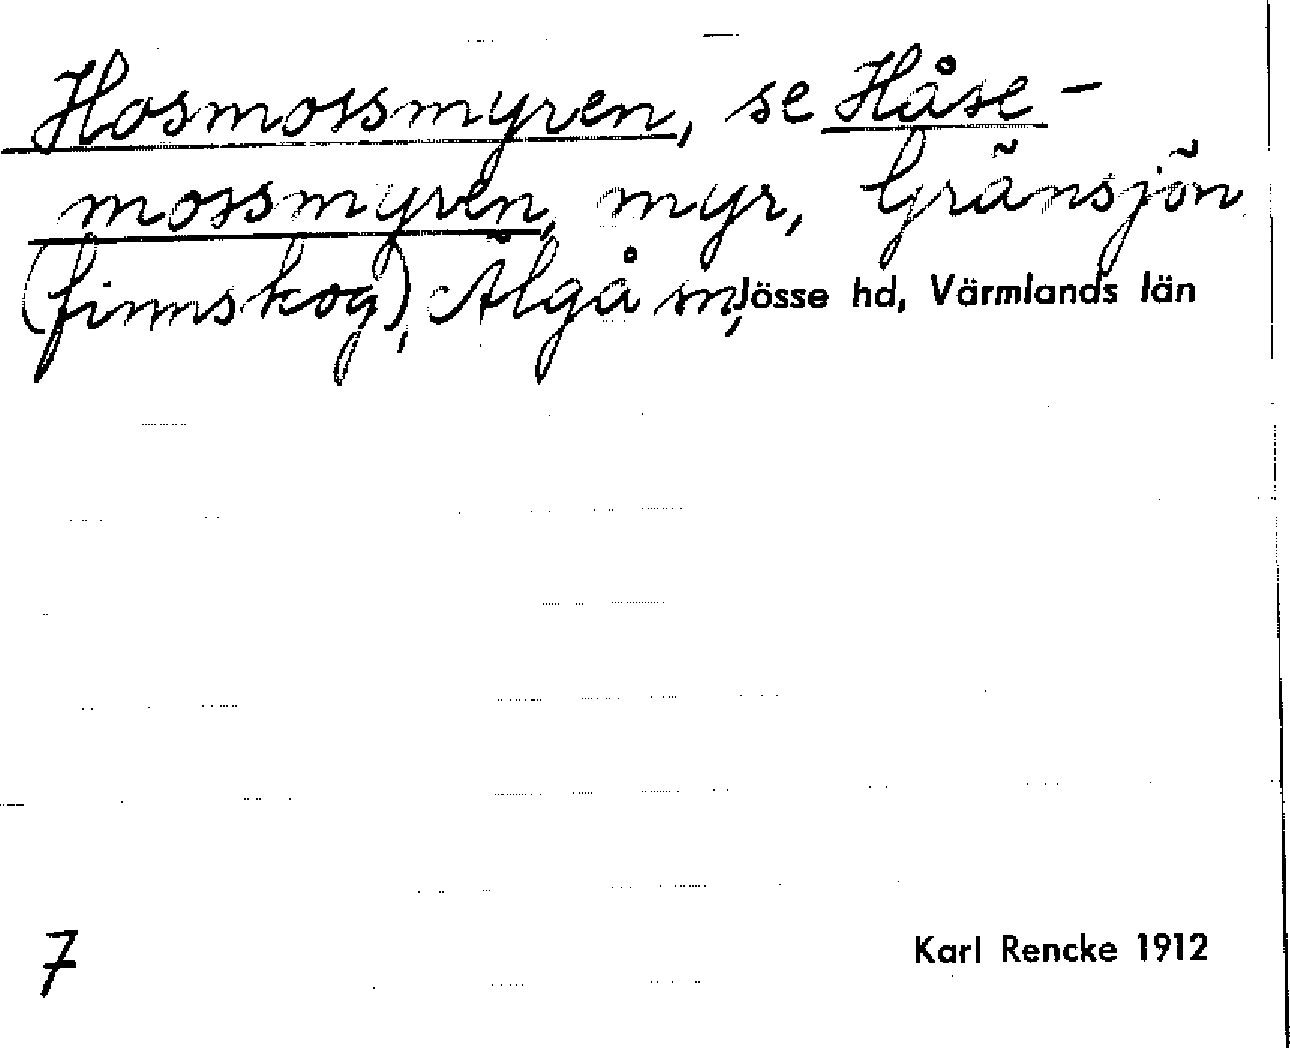 Hosmossmyren, se Håse-
mossmyren, myr, Gränsjön
(finnskog), Älgå sn, Jösse hd, Värmlands län
7
Karl Rencke 1912